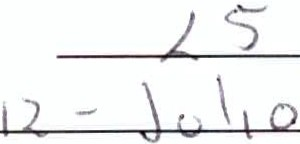 25
12 - Julio